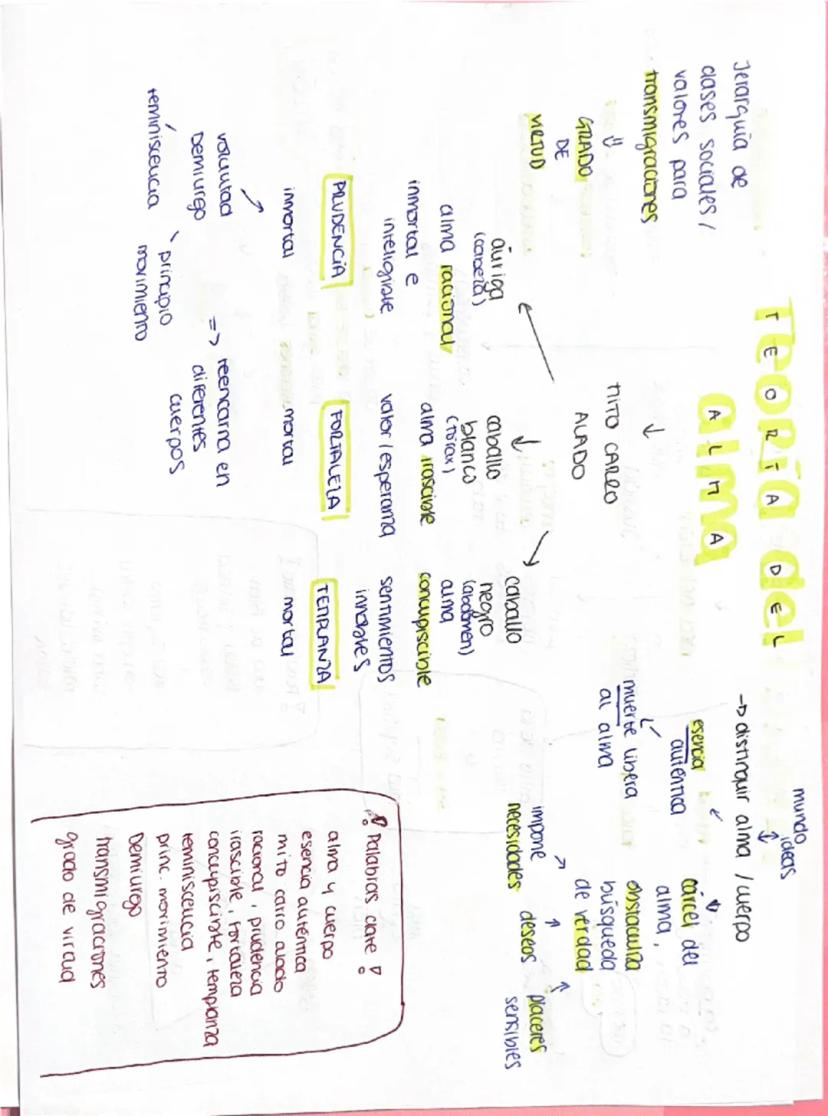 TEORÍA DEL
Teoría del
ALMA
alma
mundo
ideas
→ distinguir alma / cuerpo
esencia
auténtica
muerte libera
al alma
cárcel del
alma,
obstaculiza
búsqueda
de verdad
impone
necesidades
deseos
placeres
sensibles
Jerarquía de
clases sociales /
valores para
transmigraciones
⇓
GRADO
DE
VIRTUD
MITO CARRO
ALADO
auriga
(cabeza)
alma racional
inmortal e
inteligible
PRUDENCIA
inmortal
voluntad
Demiurgo
reminiscencia
principio
movimiento
=> reencarna en
diferentes
cuerpos
caballo
blanco
(tórax)
alma irascible
valor / esperanza
FORTALEZA
mortal
caballo
negro
(abdomen)
alma
concupiscible
sentimientos
innobles
TEMPLANZA
mortal
¡! Palabras clave !
alma y cuerpo
esencia auténtica
mito carro alado
racional, prudencia
irascible, fortaleza
concupiscible, templanza
reminiscencia
princ. movimiento
Demiurgo
transmigraciones
grado de virtud